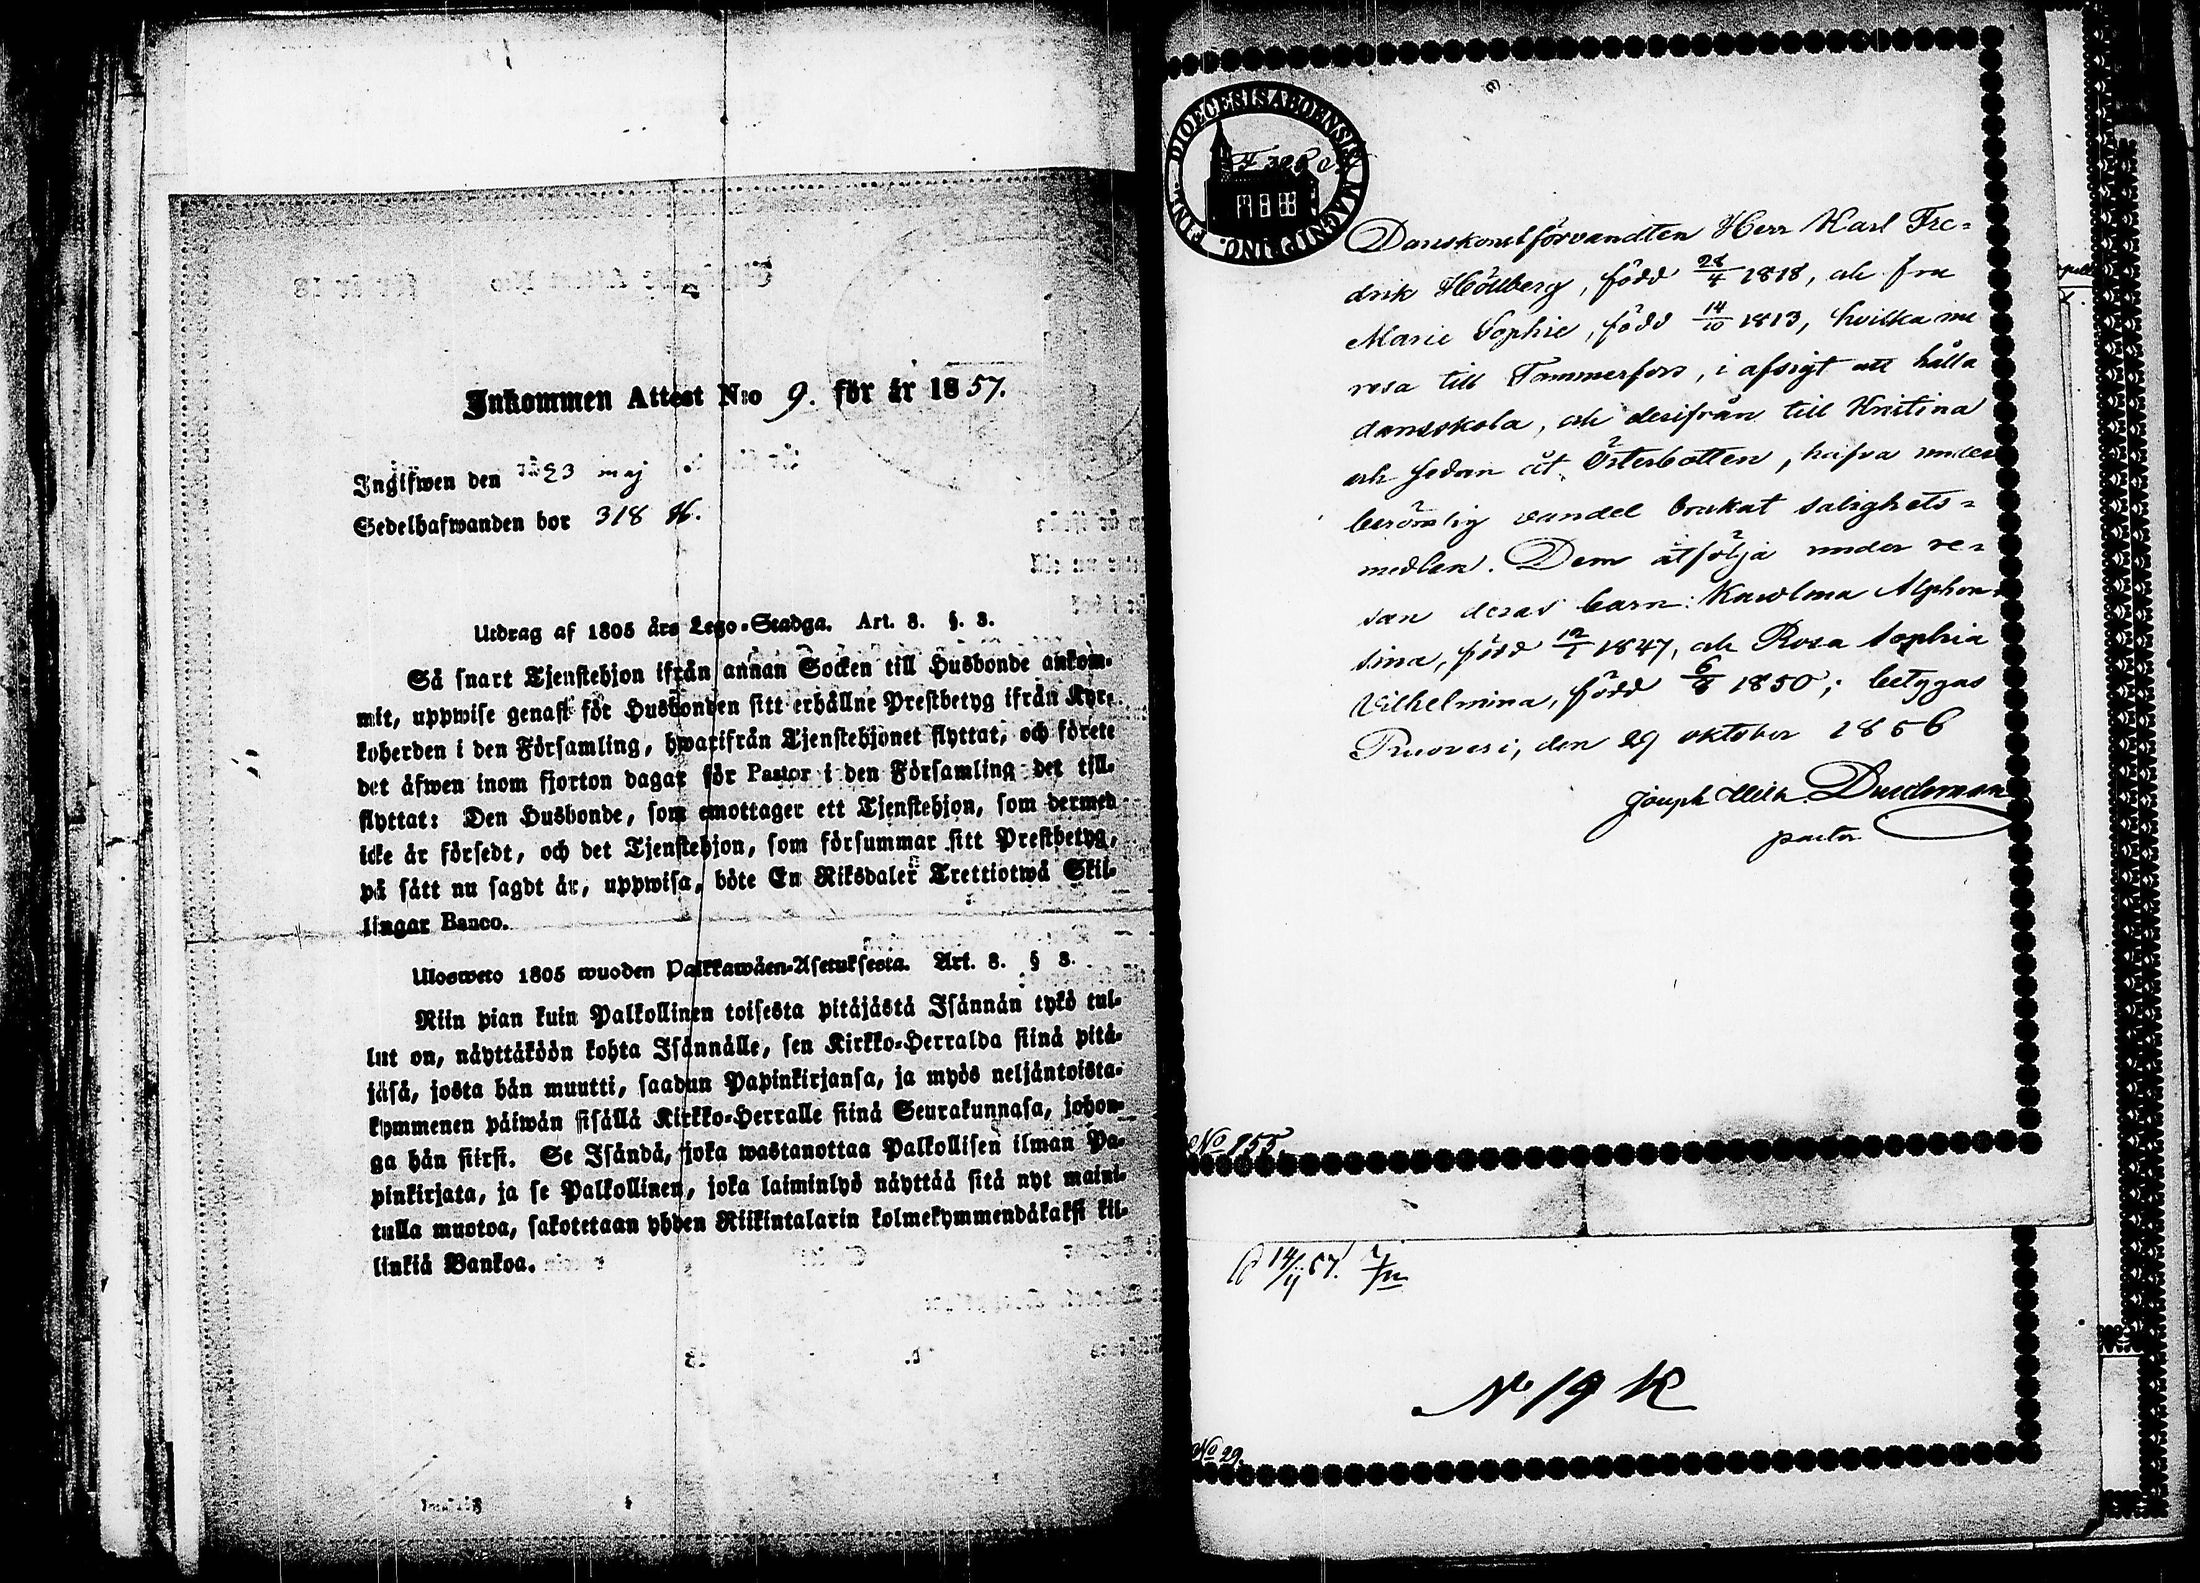 Inkommen Attest N:o 9. för år 1857.
Ingifwen den 23 maj
Sedelhafwanden bor 318 K.
Utdrag af 1805 års Lego-Stadga. Art. 8. §. 3.
Så snart Tjenstehjon ifrån annan Socken till Husbonde ankom-
mit, uppwise genast för Husbonden sitt erhållne Prestbetyg ifrån Kyr-
koherden i den Församling, hwarifrån Tjenstehjonet flyttat, och förete
det äfwen inom fjorton dagar för Pastor i den Församling det till-
flyttat: Den Husbonde, som emottager ett Tjenstehjon, som dermed
icke är försedt, och det Tjenstehjon, som försummar sitt Prestbetyg,
på sätt nu sagdt är, uppwisa, böte En Riksdaler Trettiotwå Skil-
lingar Banco.
Ulosweto 1805 wuoden Palkkawäen-Asetuksesta. Art. 8. § 3.
Niin pian kuin Palkollinen toisesta pitäjästä Isännän tykö tul-
lut on, näyttäköön kohta Isännälle, sen Kirkko-Herralda siinä pitä-
jäsä, josta hän muutti, saadun Papinkirjansa, ja myös neljäntoista-
kymmenen päiwän sisällä Kirkko-Herralle siinä Seurakunnasa, johon-
ga hän siirsi. Se Isändä, joka wastanottaa Palkollisen ilman Pa-
pinkirjata, ja se Palkollinen, joka laiminlyö näyttää sitä nyt maini-
tulla muotoa, sakotetaan yhden Riikintalarin kolmekymmendäkaksi kil-
linkiä Bankoa.
FINL. DIOECESIS ABOENSIS IN MAGNIP. ING.
Danskonstförvandten Herr Karl Fre-
drik Höllberg, född 28/4 1818, och fru
Marie Sophie, född 14/10 1813, hvilka nu
resa till Tammerfors, i afsigt att hålla
dansskola, och derifrån till Kristina
och sedan åt Österbotten, hafva under
berömlig vandel brukat salighets-
medlen. Dem åtfölja under re-
san deras barn: Karolina Alphon-
sina, född 12/1 1847, och Rosa Sophia
Vilhelmina, född 6/8 1850; betygas
Ruovesi, den 29 oktober 1856
Joseph Durchman
pastor
No 155.
14/4 57.
No 19 K
No 29.